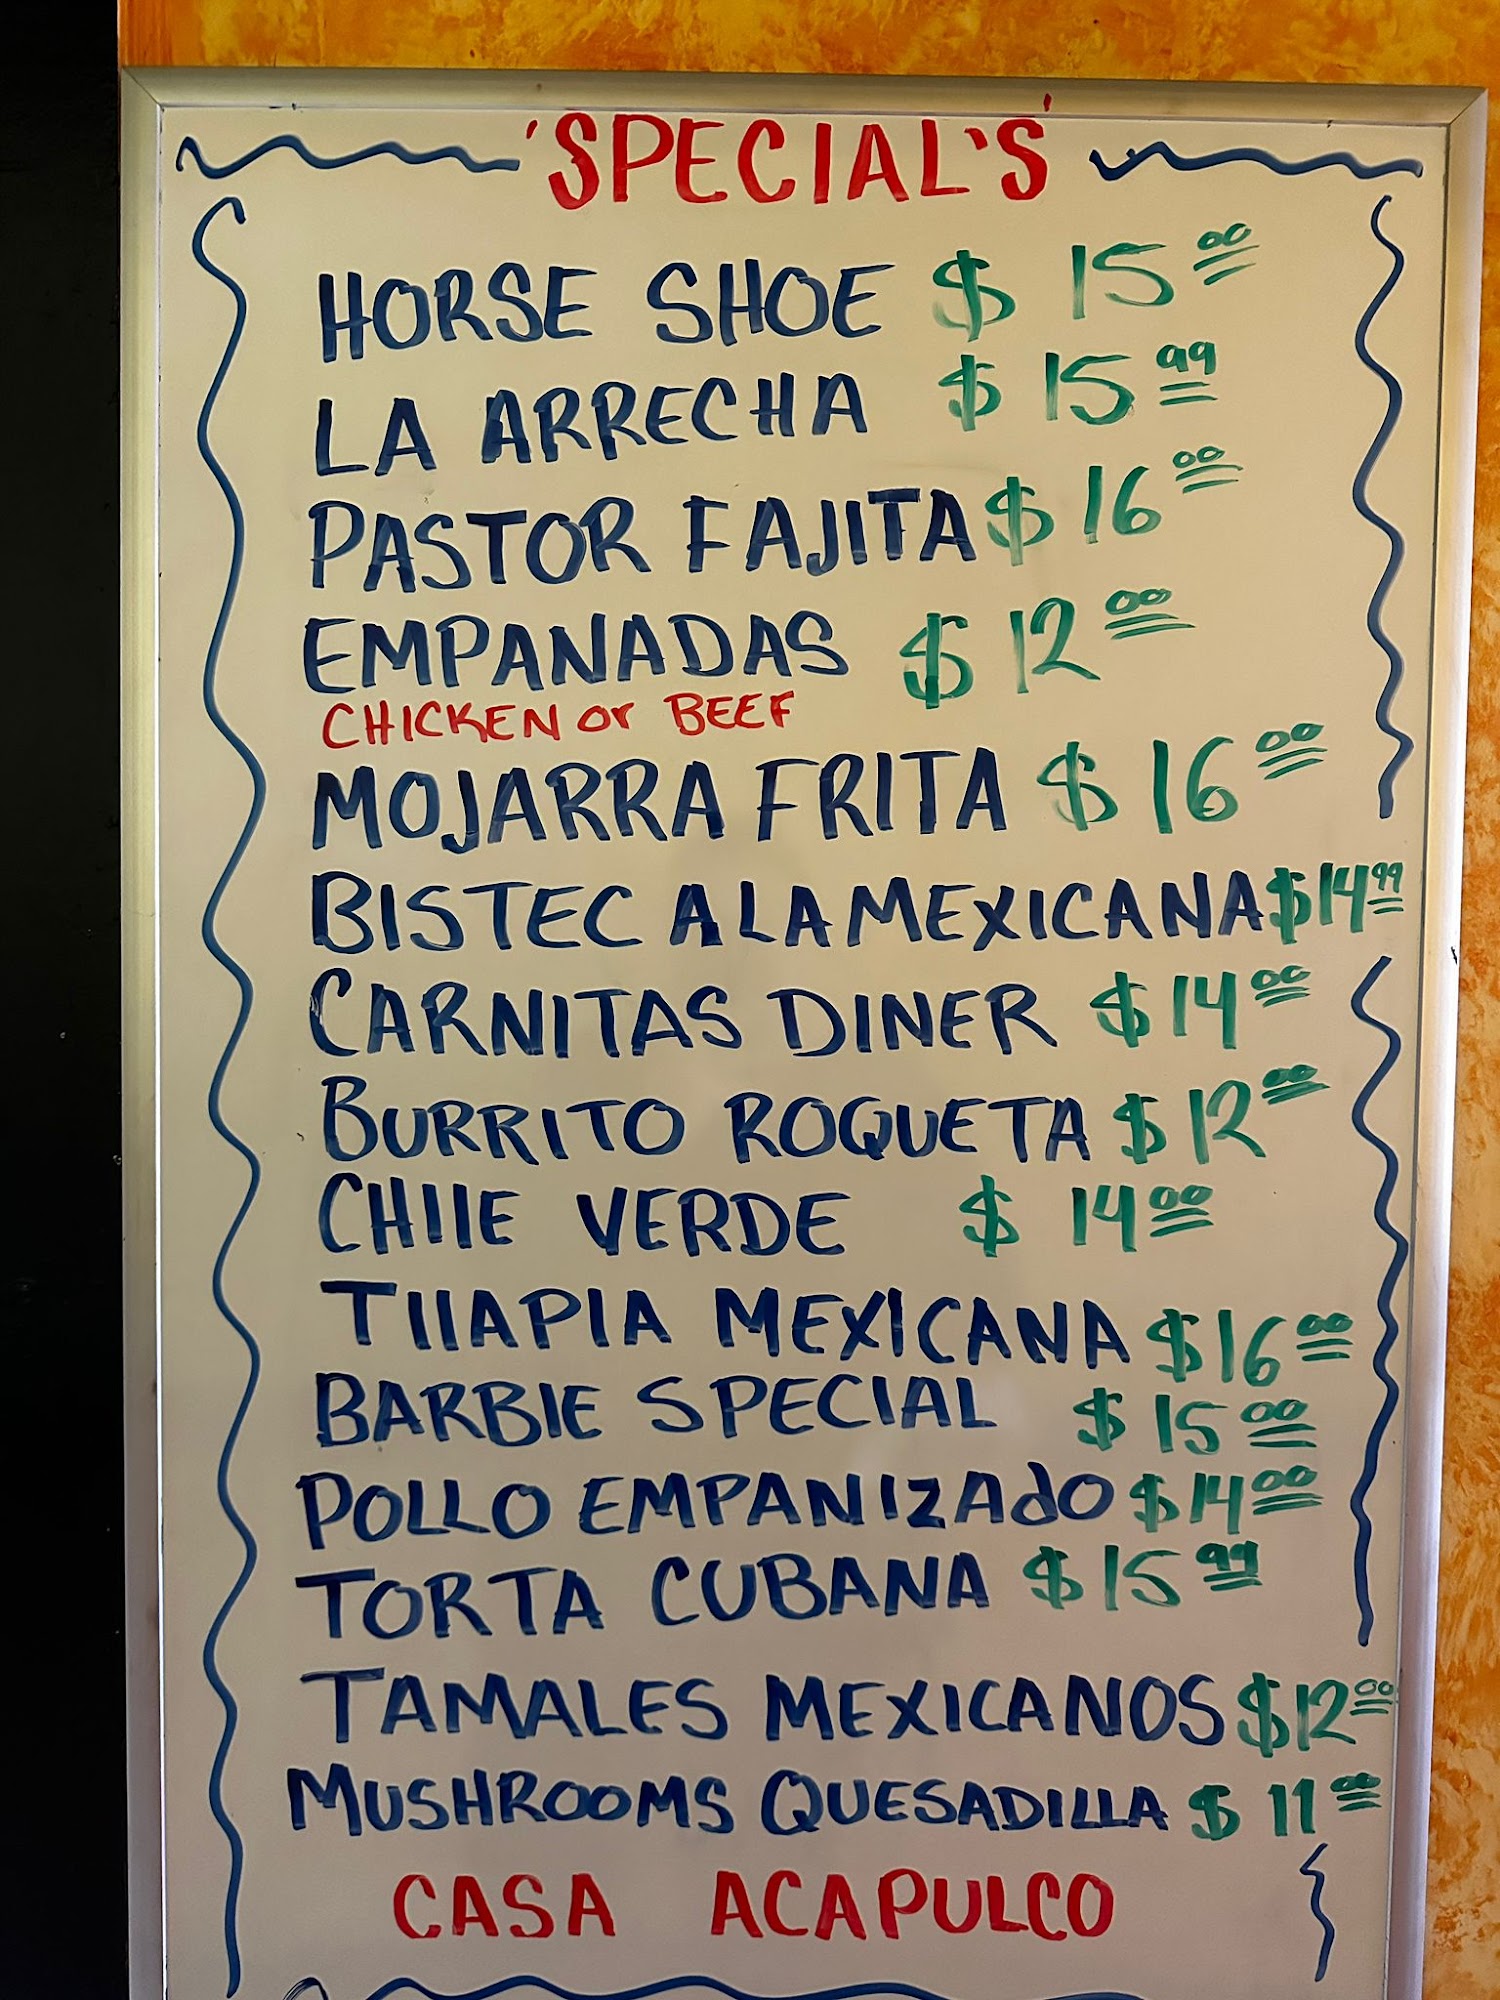 'SPECIAL'S'
HORSE SHOE $ 15 00
LA ARRECHA $ 15 99
PASTOR FAJITA $ 16 00
EMPANADAS $ 12 00
CHICKEN or BEEF
MOJARRA FRITA $ 16 00
BISTEC A LA MEXICANA $14 99
CARNITAS DINER $ 14 00
BURRITO ROQUETA $ 12 00
CHIlE VERDE $ 14 00
TIlAPIA MEXICANA $ 16 00
BARBIE SPECIAL $ 15 00
POLLO EMPANIZAdO $ 14 00
TORTA CUBANA $ 15 99
TAMALES MEXICANOS $12 00
MUSHROOMS QUESADILLA $ 11 00
CASA ACAPULCO